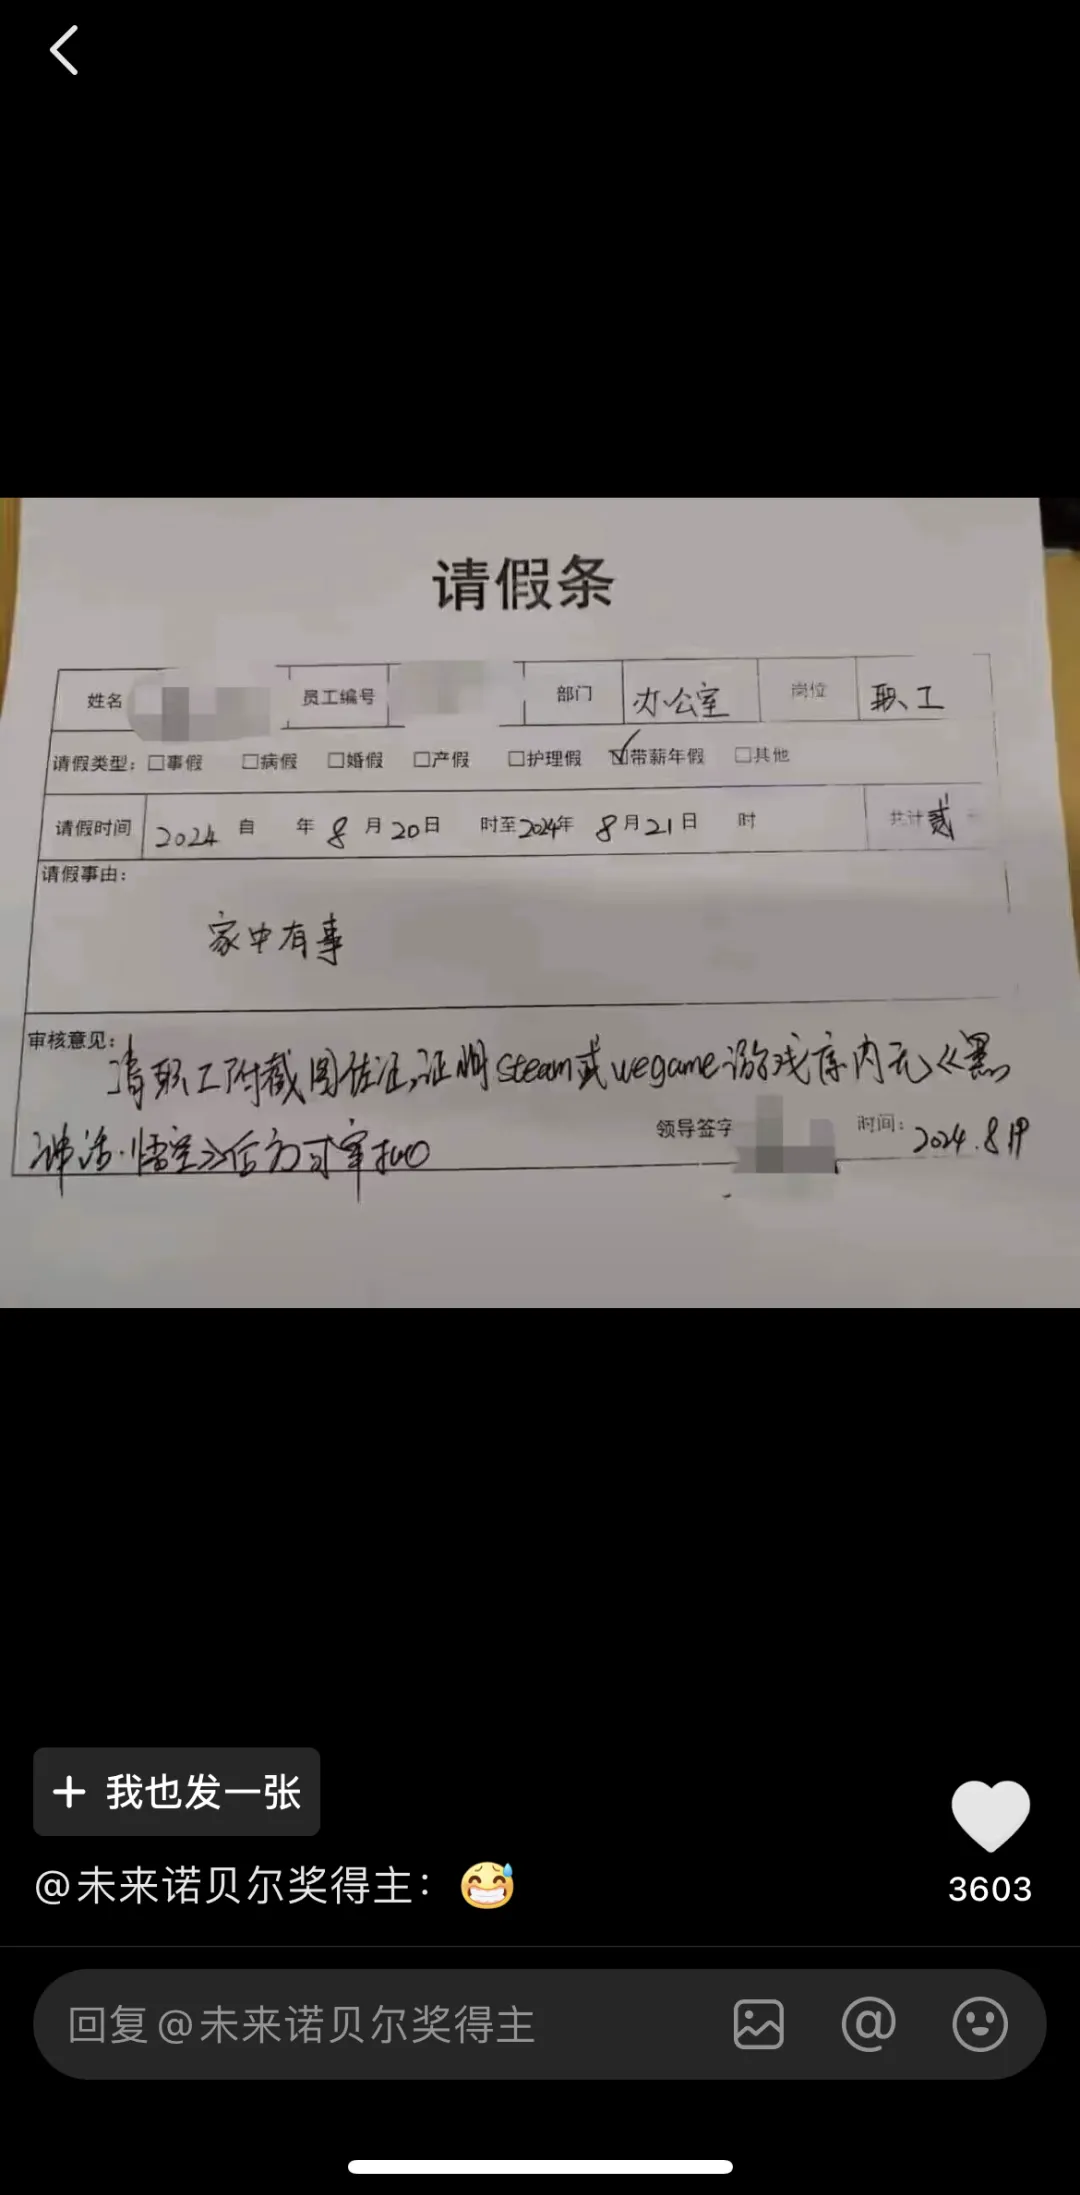 请假条
姓名 员工编号 部门 办公室 岗位 职工
请假类型：□事假 □病假 □婚假 □产假 □护理假 ☑带薪年假 □其他
请假时间 2024 自 年 8 月 20 日 时至 2024 年 8 月 21 日 时 共计 贰 天
请假事由：
家中有事
审核意见：
请职工附截图佐证,证明steam或wegame游戏库内无《黑
神话·悟空》后方可审批
领导签字 时间： 2024.8.19
+ 我也发一张
@未来诺贝尔奖得主：😅
3603
回复@未来诺贝尔奖得主